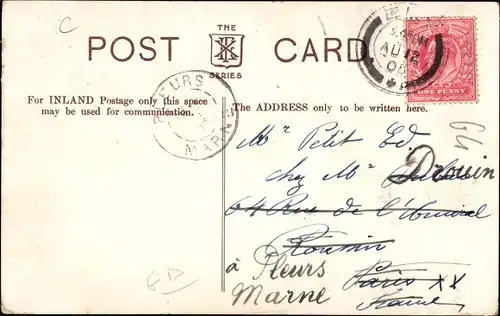 C
POST CARD
THE
SERIES
AU 12
ONE PENNY
PLEURS
MARNE
For INLAND Postage only this space
may be used for communication.
The ADDRESS only to be written here.
Mr Petit Ed.
chez Mr Drouin
64 Rue de l'Amiral
Roussin
à Pleurs
Marne
Paris XX
France
64